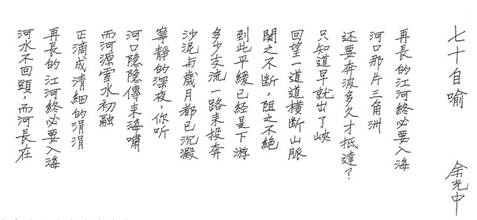 七十自喻
余光中
再長的江河終必要入海
河口那片三角洲
还要奔波多久才抵達？
只知道早就出了峽
回望一道道橫斷山脈
関之不斷，阻之不絕
到此平緩已經是下游
多少支流一路來投奔
沙泥与歲月都已沉澱
寧靜的深夜，你听
河口隱隱傳來海嘯
而河源雪水初融
正滴成清細的涓涓
再長的江河終必要入海
河水不回頭，而河長在